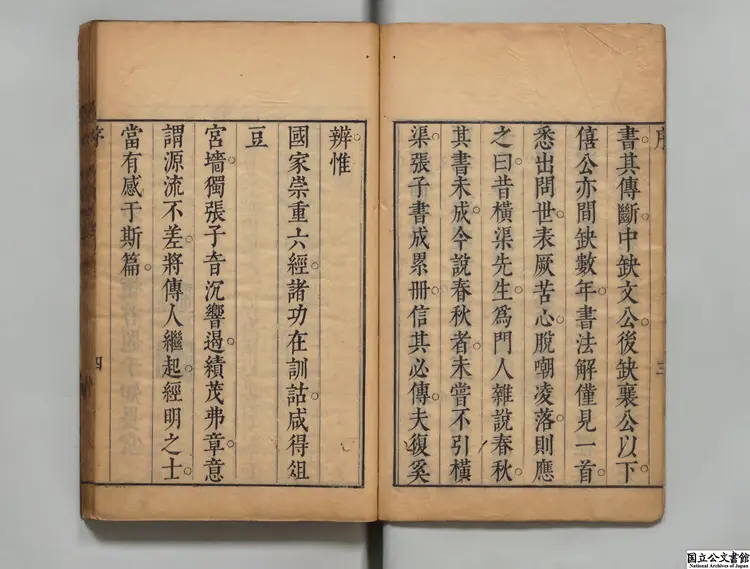 序
書其傳斷中缺文公後缺襄公以下
僖公亦間缺數年書法解僅見一首
悉出問世表厥苦心脫嘲凌落則應
之曰昔橫渠先生為門人雜說春秋
其書未成今說春秋者未嘗不引橫
渠張子書成累冊信其必傳夫復奚
三
辨惟
國家崇重六經諸功在訓詁咸得俎
豆
宮墻獨張子音沉響遏績茂弗章意
謂源流不差將傳人繼起經明之士
當有感于斯篇
序
四
国立公文書館
National Archives of Japan